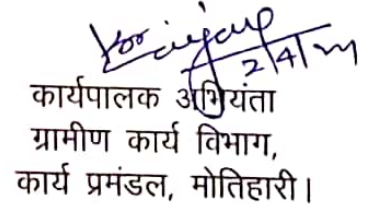 2/4/
कार्यपालक अभियंता
ग्रामीण कार्य विभाग,
कार्य प्रमंडल, मोतिहारी।